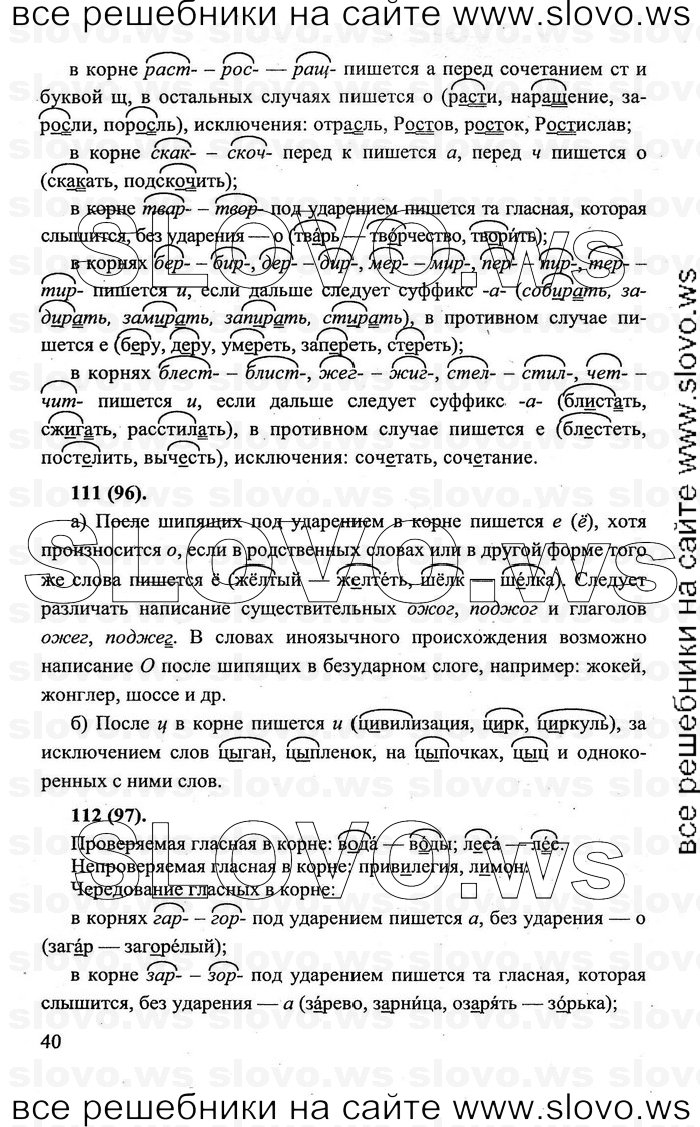 все решебники на сайте www.slovo.ws
в корне раст- – рос- — ращ- пишется а перед сочетанием ст и
буквой щ, в остальных случаях пишется о (расти, наращение, за-
росли, поросль), исключения: отрасль, Ростов, росток, Ростислав;
в корне скак- – скоч- перед к пишется а, перед ч пишется о
(скакать, подскочить);
в корне твар- – твор- под ударением пишется та гласная, которая
слышится, без ударения — о (тва́рь — тво́рчество, твори́ть);
в корнях бер- – бир-, дер- – дир-, мер- – мир-, пер- – пир-, тер- –
тир- пишется и, если дальше следует суффикс -а- (собирать, за-
дирать, замирать, запирать, стирать), в противном случае пи-
шется е (беру, деру, умереть, запереть, стереть);
в корнях блест- – блист-, жег- – жиг-, стел- – стил-, чет- –
чит- пишется и, если дальше следует суффикс -а- (блистать,
сжигать, расстилать), в противном случае пишется е (блестеть,
постелить, вычесть), исключения: сочетать, сочетание.
111 (96).
а) После шипящих под ударением в корне пишется е (ё), хотя
произносится о, если в родственных словах или в другой форме того
же слова пишется ё (жёлтый — желте́ть, шёлк — ше́лка). Следует
различать написание существительных ожог, поджог и глаголов
ожег, поджег. В словах иноязычного происхождения возможно
написание О после шипящих в безударном слоге, например: жокей,
жонглер, шоссе и др.
б) После ц в корне пишется и (цивилизация, цирк, циркуль), за
исключением слов цыган, цыпленок, на цыпочках, цыц и одноко-
ренных с ними слов.
112 (97).
Проверяемая гласная в корне: вода́ — во́ды; леса́ — ле́с.
Непроверяемая гласная в корне: привилегия, лимон.
Чередование гласных в корне:
в корнях гар- – гор- под ударением пишется а, без ударения — о
(зага́р — загоре́лый);
в корне зар- – зор- под ударением пишется та гласная, которая
слышится, без ударения — а (за́рево, зарни́ца, озаря́ть — зо́рька);
40
все решебники на сайте www.slovo.ws
все решебники на сайте www.slovo.ws
SLOVO.ws
SLOVO.ws
SLOVO.ws